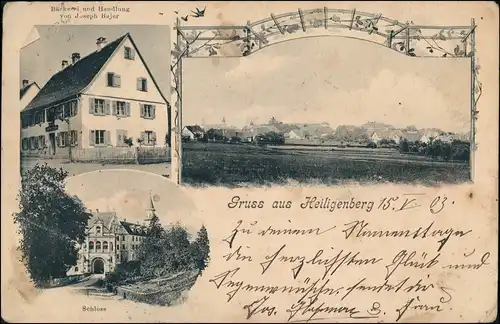 Bäckerei und Handlung
von Joseph Rajer
Gruss aus Heiligenberg 15. V 03.
Zu deinem Namenstage
die herzlichsten Glück und
Segenwünsche, sendet dir
Jos. u. Frau
Schloss